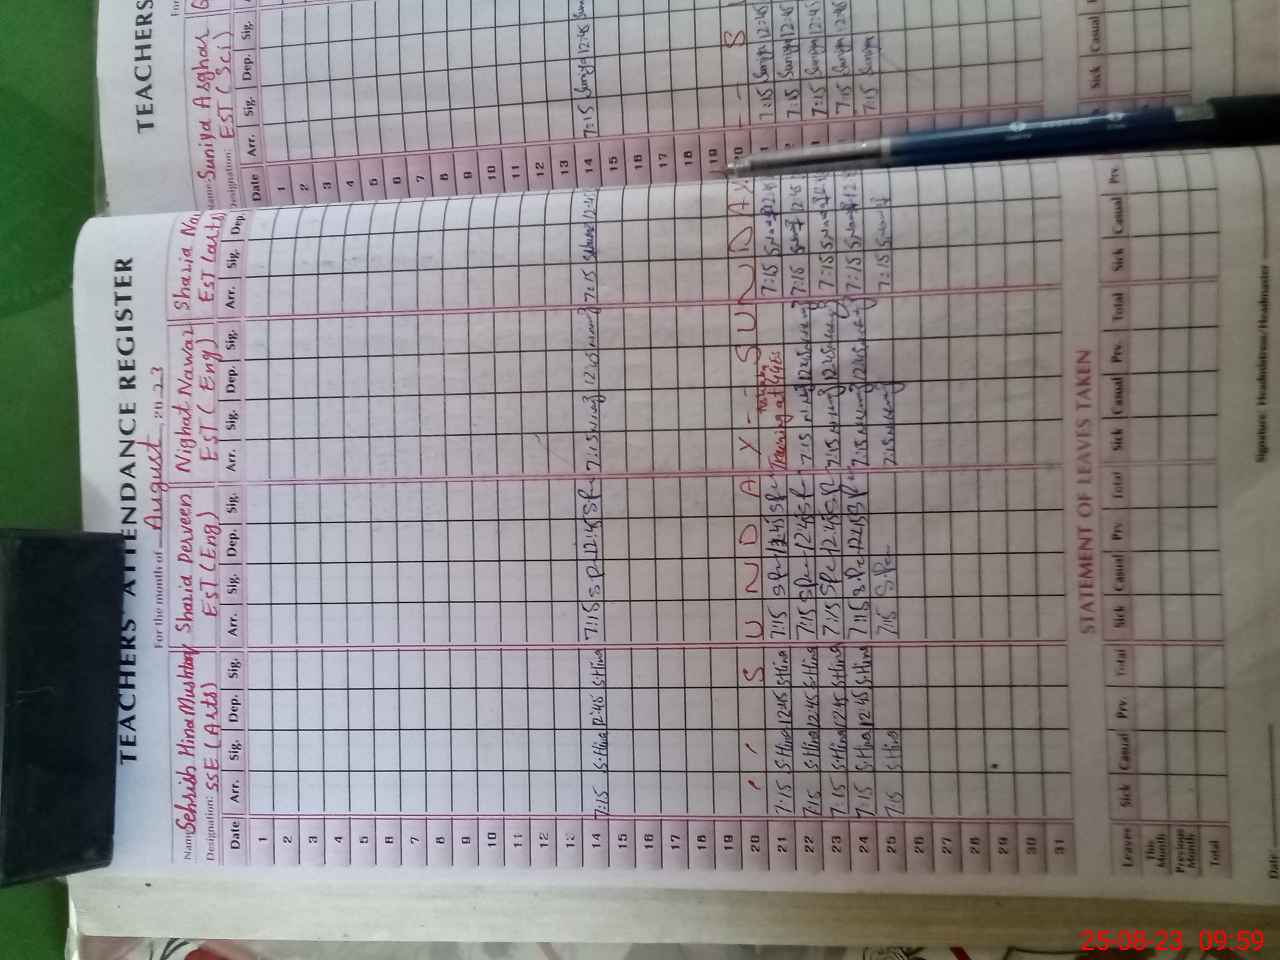 TEACHERS' ATTENDANCE REGISTER
For the month of August, 2023
Name: Sehrish Hina Mushtaq Shazia Perveen Nighat Nawaz Shazia Na
Designation: SSE (Arts) EST (Eng) EST (Eng) EST (arts)
Date Arr. Sig. Dep. Sig. Arr. Sig. Dep. Sig. Arr. Sig. Dep. Sig. Arr. Sig. Dep.
1
2
3
4
5
6
7
8
9
10
11
12
13
14 7:15 S.Hina 12:45 S.Hina 7:15 12:45 7:15 12:45 7:15 12:45
15
16
17
18
19
20 S U N D A Y - - S U N D A Y
21 7:15 S.Hina 12:45 S.Hina 7:15 12:45 Training at GGES 7:15 12:45
22 7:15 S.Hina 12:45 S.Hina 7:15 12:45 7:15 12:45 7:15 12:45
23 7:15 S.Hina 12:45 S.Hina 7:15 12:45 7:15 12:45 7:15 12:45
24 7:15 S.Hina 12:45 S.Hina 7:15 12:45 7:15 12:45 7:15 12:45
25 7:15 S.Hina 7:15 7:15 7:15
26
27
28
29
30
31
STATEMENT OF LEAVES TAKEN
Leaves Sick Casual Prv. Total Sick Casual Prv. Total Sick Casual Prv. Total Sick Casual Prv.
This Month
Previous Month
Total
Date: Signature: Headmistress/Headmaster
TEACHERS
For
Name: Suniya Asghar
Designation: EST (Sci)
Date Arr. Sig. Dep. Sig.
1
2
3
4
5
6
7
8
9
10
11
12
13
14 7:15 Suniya 12:45
15
16
17
18
19
20 S
7:15 Suniya 12:45
7:15 Suniya 12:45
7:15 Suniya 12:45
7:15 Suniya 12:45
7:15 Suniya
Sick Casual
25-08-23 09:59